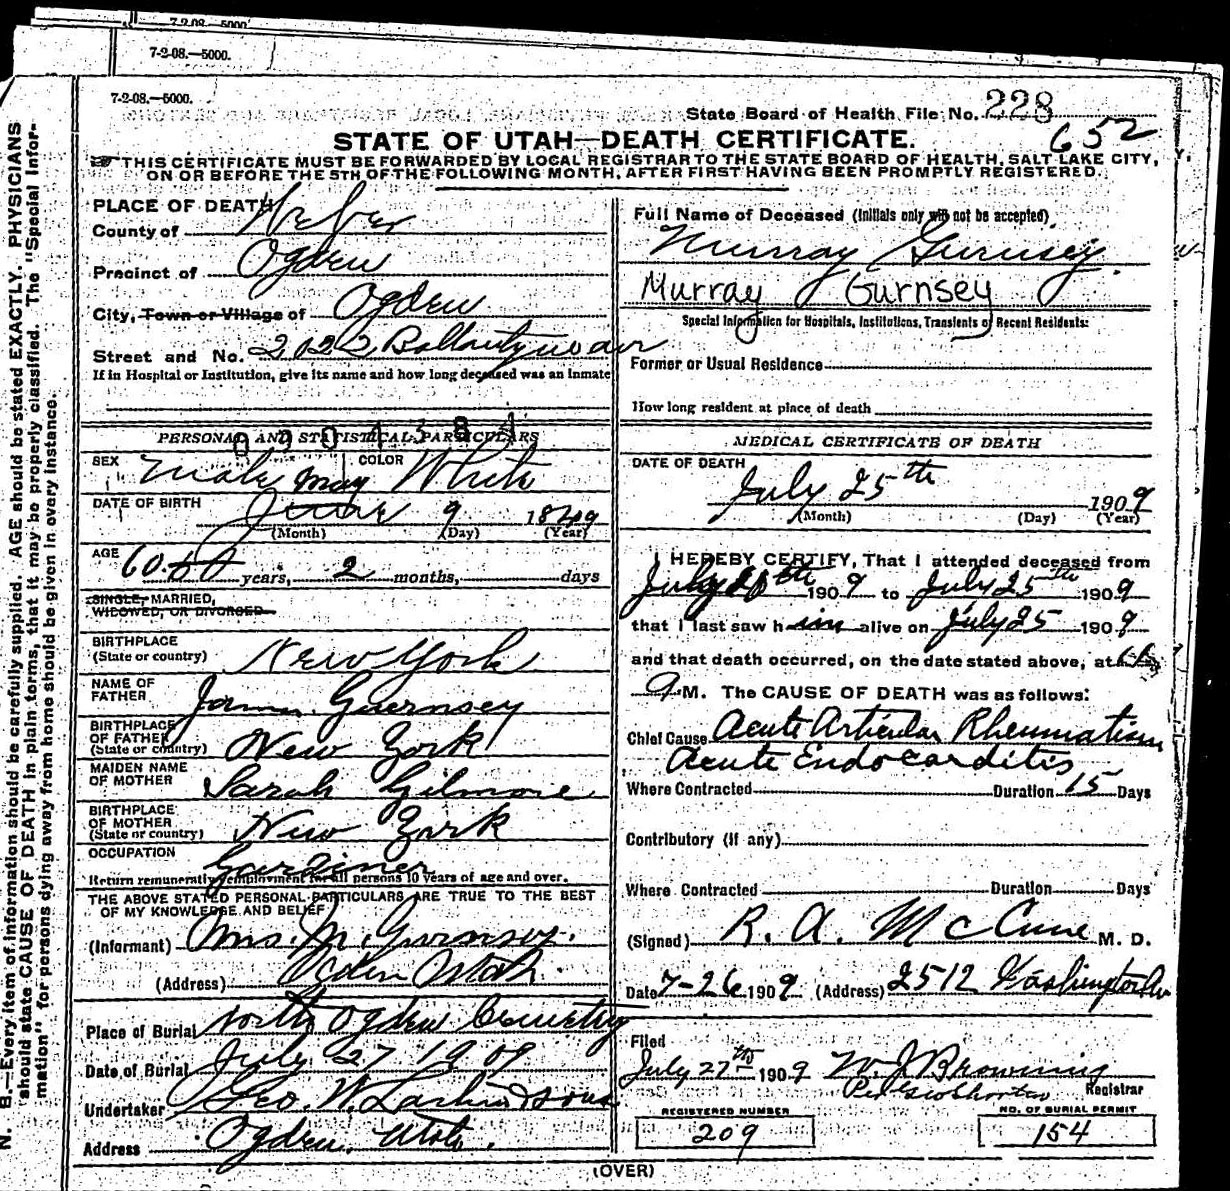 7-2-08.—5000.
7-2-08.—5000.
7-2-08.—5000.
State Board of Health File No. 228
652
STATE OF UTAH—DEATH CERTIFICATE.
THIS CERTIFICATE MUST BE FORWARDED BY LOCAL REGISTRAR TO THE STATE BOARD OF HEALTH, SALT LAKE CITY,
ON OR BEFORE THE 5TH OF THE FOLLOWING MONTH, AFTER FIRST HAVING BEEN PROMPTLY REGISTERED.
N. B.—Every item of information should be carefully supplied. AGE should be stated EXACTLY. PHYSICIANS
should state CAUSE OF DEATH in plain terms, that it may be properly classified. The "Special Infor-
mation" for persons dying away from home should be given in every instance.
PLACE OF DEATH
County of Weber
Precinct of Ogden
City, Town or Village of Ogden
Street and No. 2022 Ballantyne ave
If in Hospital or Institution, give its name and how long deceased was an inmate
PERSONAL AND STATISTICAL PARTICULARS
SEX Male COLOR White
may
DATE OF BIRTH June 9 1849
(Month) (Day) (Year)
AGE 60 years, 2 months, days
SINGLE, MARRIED,
WIDOWED, OR DIVORCED
BIRTHPLACE
(State or country) New York
NAME OF
FATHER James Guernsey
BIRTHPLACE
OF FATHER
(State or country) New York
MAIDEN NAME
OF MOTHER Sarah Gilmore
BIRTHPLACE
OF MOTHER
(State or country) New York
OCCUPATION Gardiner
Return remunerative employment for all persons 10 years of age and over.
THE ABOVE STATED PERSONAL PARTICULARS ARE TRUE TO THE BEST
OF MY KNOWLEDGE AND BELIEF
(Informant) Mrs. M. Gurnsey.
(Address) Ogden Utah.
Place of Burial North Ogden Cemetery
Date of Burial July 27 1909
Undertaker Geo. W. Larkin & Sons
Address Ogden, Utah.
Full Name of Deceased (Initials only will not be accepted)
Murray Gurnsey.
Murray Gurnsey
Special Information for Hospitals, Institutions, Transients or Recent Residents:
Former or Usual Residence
How long resident at place of death
MEDICAL CERTIFICATE OF DEATH
DATE OF DEATH
July 25th 1909
(Month) (Day) (Year)
I HEREBY CERTIFY, That I attended deceased from
July 1909 to July 25th 1909
that I last saw him alive on July 25 1909
and that death occurred, on the date stated above, at
M. The CAUSE OF DEATH was as follows:
Chief Cause Acute Articular Rheumatism
Acute Endocarditis
Where Contracted Duration 15 Days
Contributory (if any)
Where Contracted Duration Days
(Signed) R. A. McCune M. D.
Date 7-26 1909 (Address) 2512 Washington Av
Filed
July 27th 1909 W. J. Browning
Registrar
REGISTERED NUMBER
209
NO. OF BURIAL PERMIT
154
(OVER)